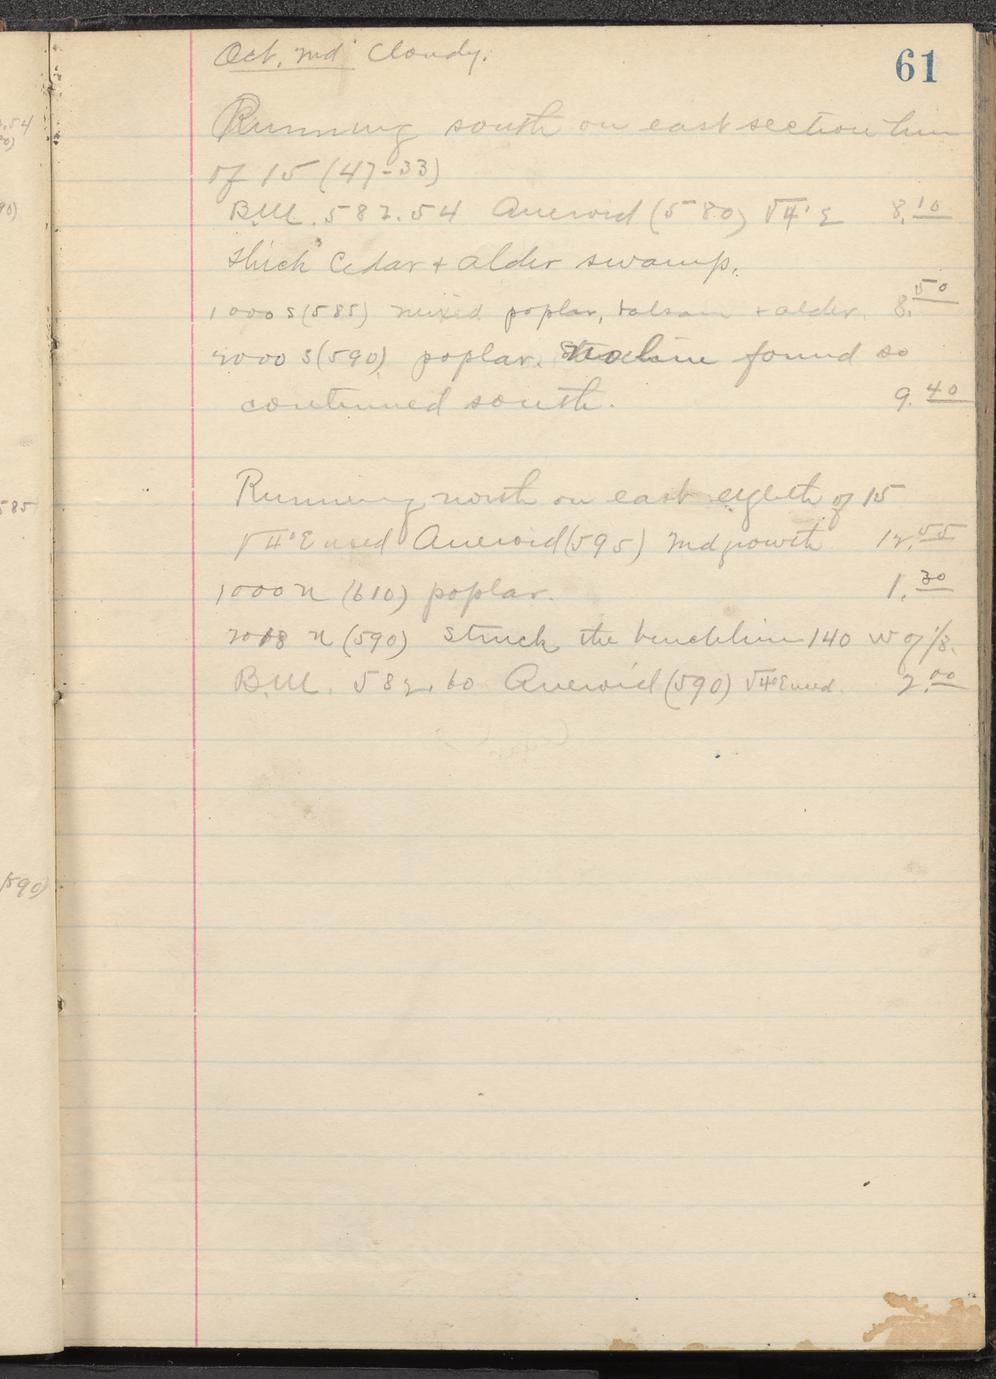 61
Oct. 2nd Cloudy.
Running south on east section line
of 15 (47-33)
B.M. 582.54 Aneroid (580) V4°E 8.10
thick Cedar + alder swamp.
1000 S (585) mixed poplar, balsam + alder. 8.50
2000 S (590) poplar. No line found so
continued south. 9.40
Running north on east eighth of 15
V4°E used Aneroid (595) 2nd growth 12.55
1000 N (610) poplar. 1.30
N (590) Struck the benchline 140 W of 1/8.
B.M. 582.60 Aneroid (590) V4°E used. 2.00
585
(590)